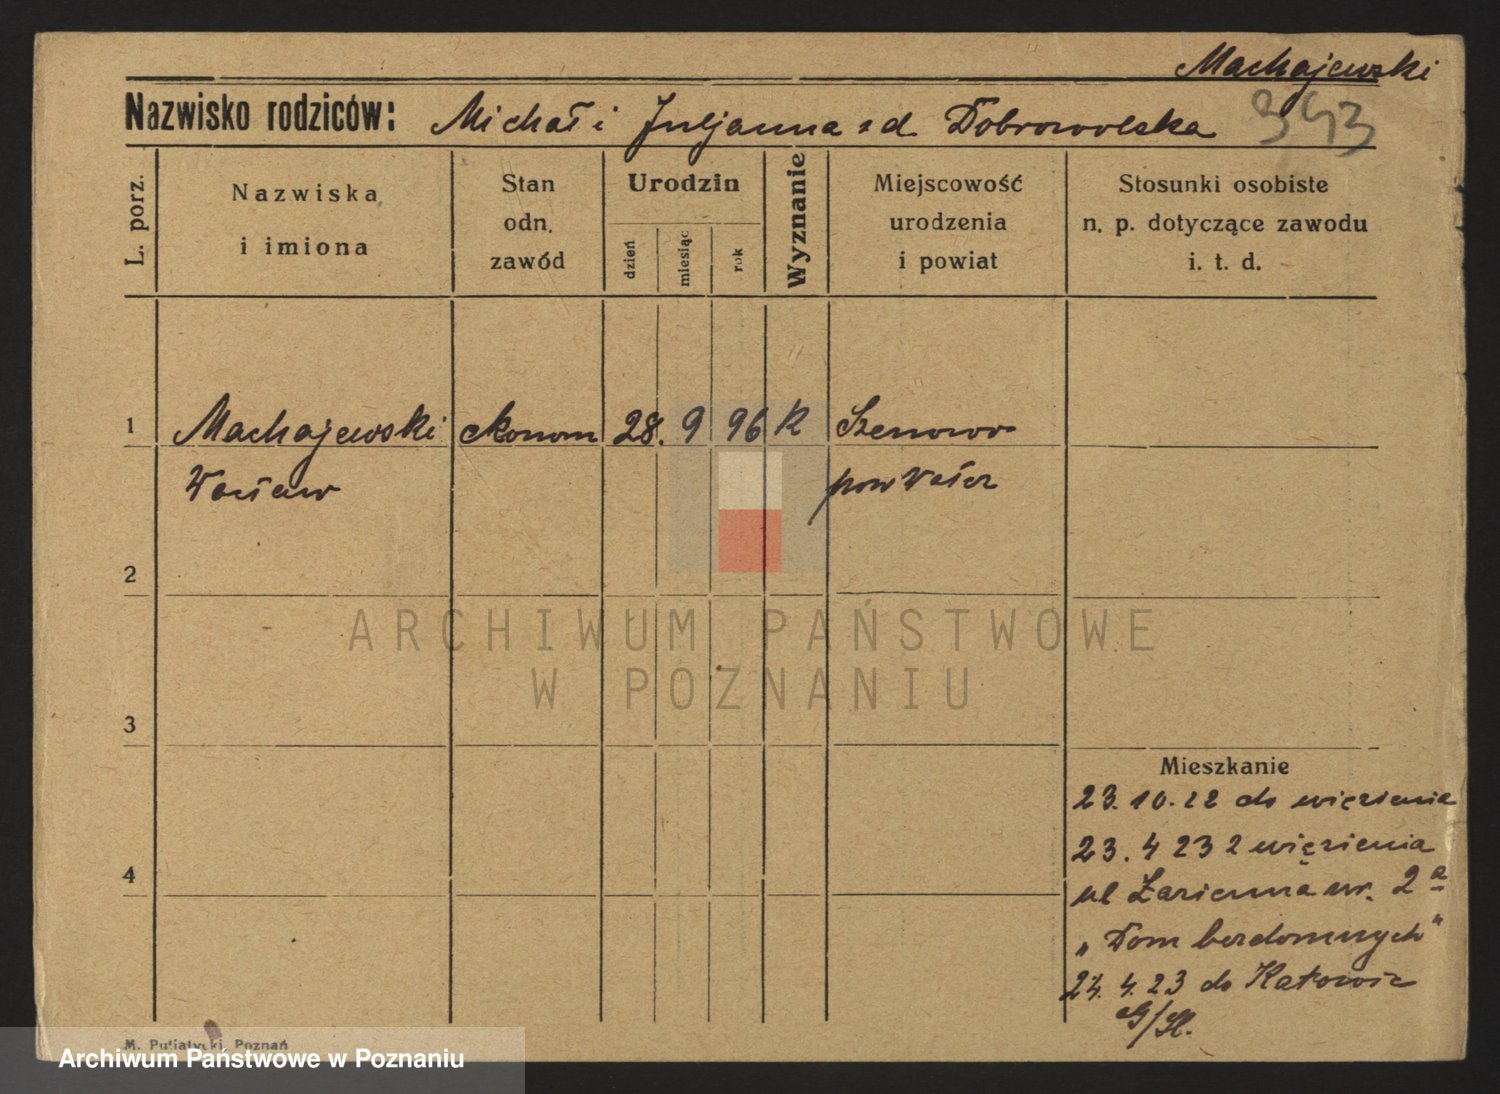 Machajewski
Nazwisko rodziców: Michał i Juljanna zd Dobrowolska 343
L. porz.
Nazwiska
i imiona
Stan
odn.
zawód
Urodzin
dzień
miesiąc
rok
Wyznanie
Miejscowość
urodzenia
i powiat
Stosunki osobiste
n. p. dotyczące zawodu
i. t. d.
1 Machajewski ekonom 28. 9 96 k
Wacław pow Wałcz
2
ARCHIWUM PAŃSTWOWE
W POZNANIU
3
Mieszkanie
23. 10. 22 do więzienia
4
23. 4 23 z więzienia
ul Łazienna nr. 2a
„Dom bezdomnych"
24. 4. 23 do Katowic
G/Śl.
M. Putiatycki, Poznań
Archiwum Państwowe w Poznaniu